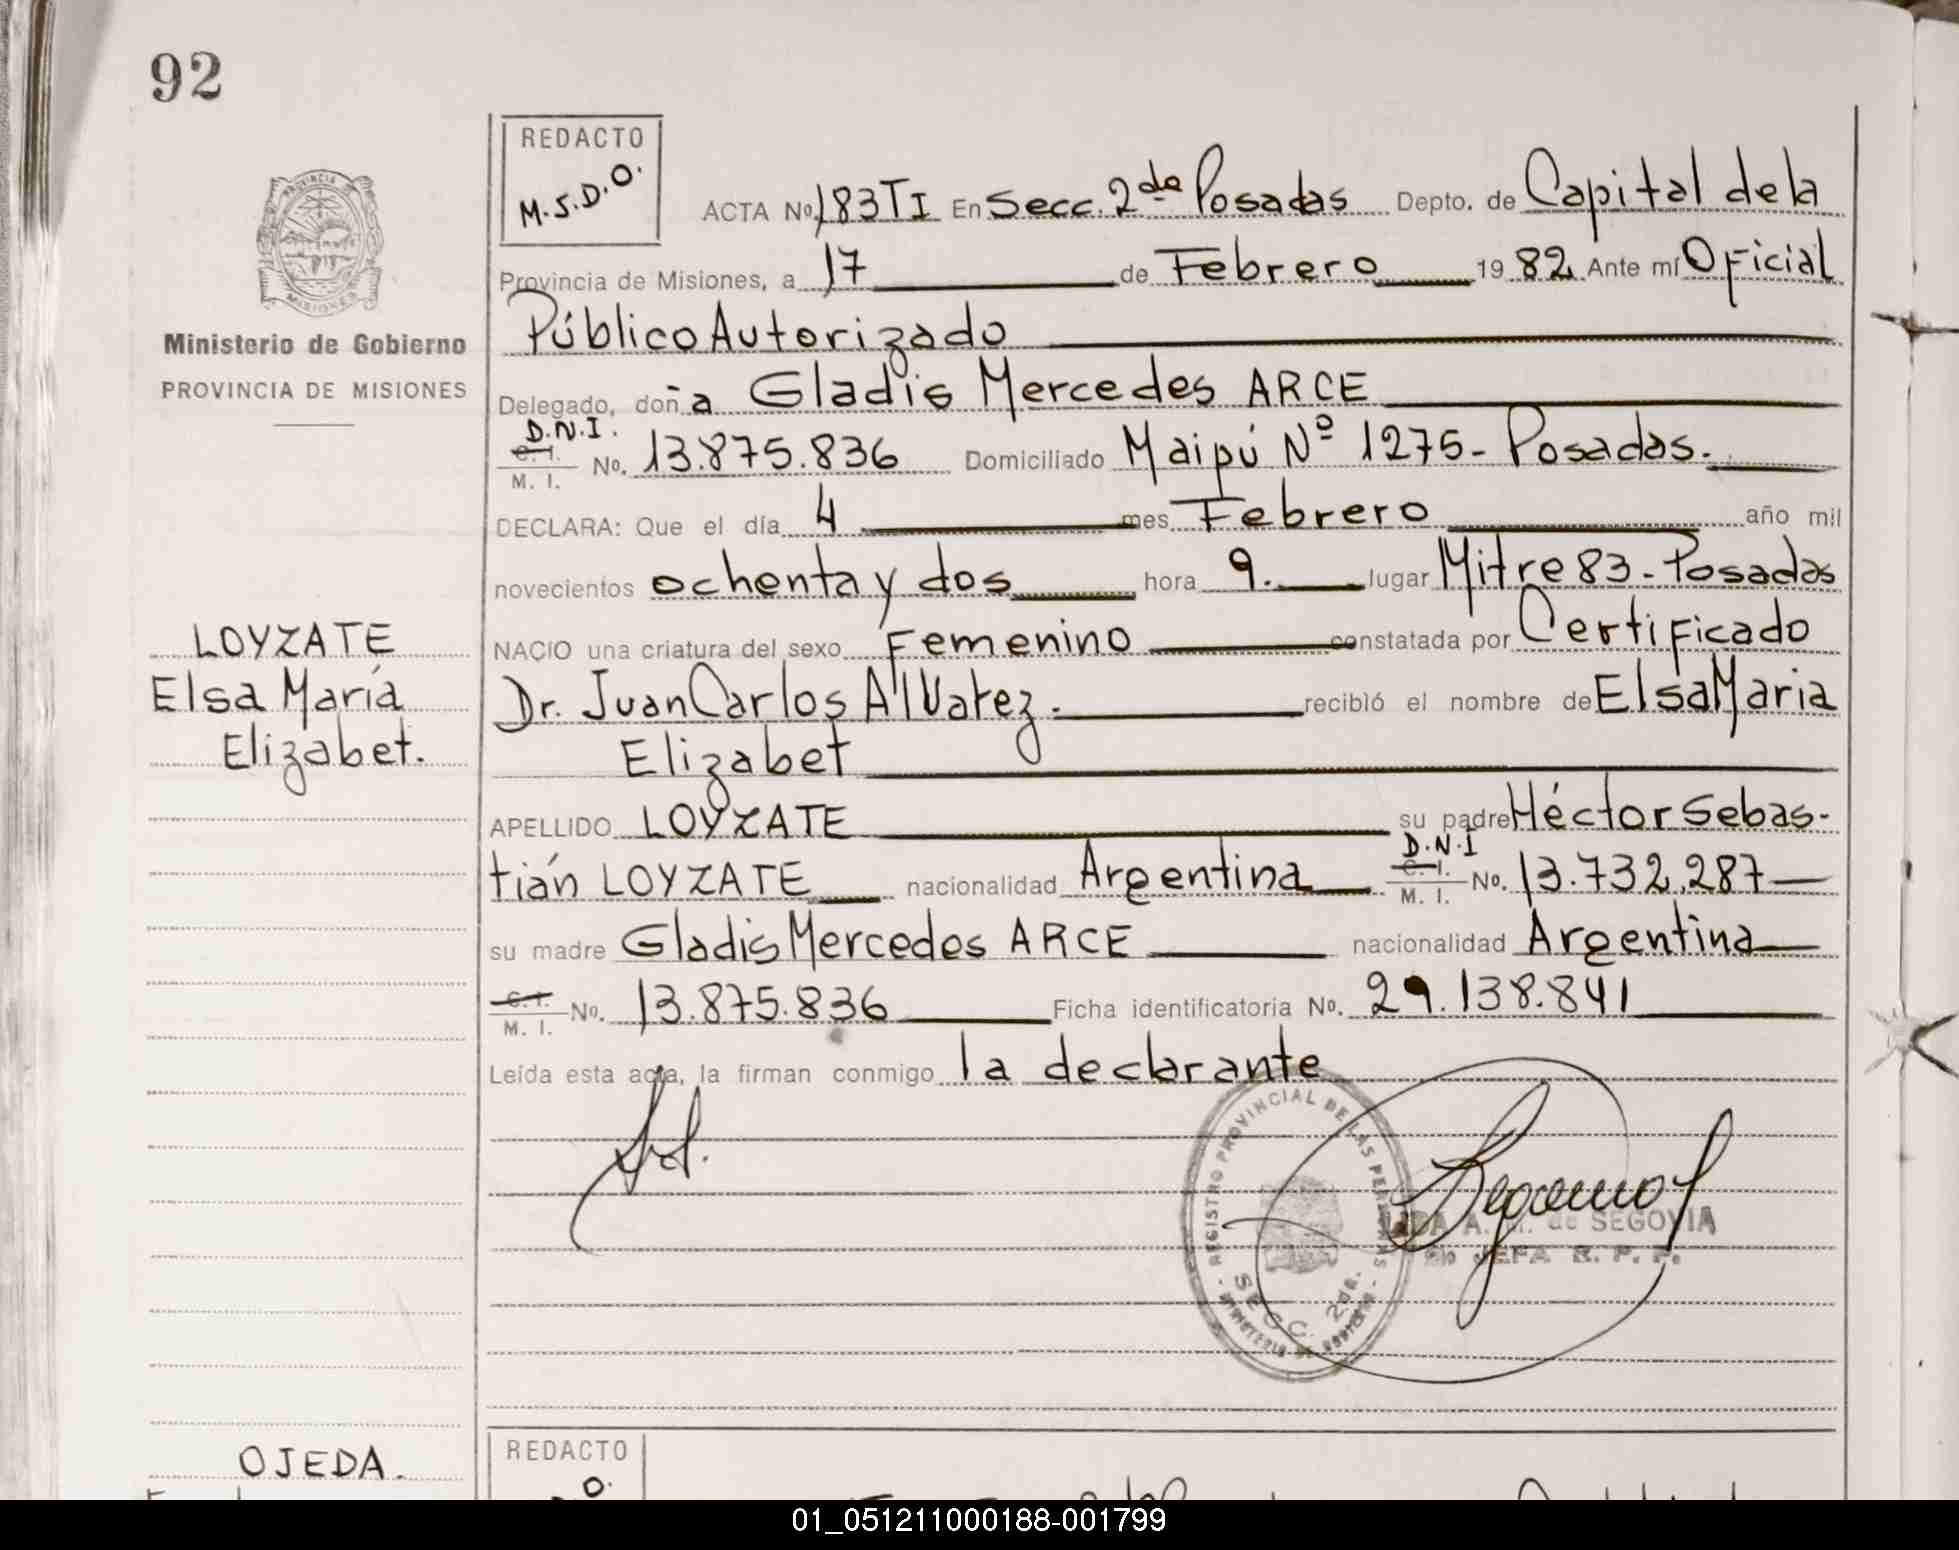 92
REDACTO
M.S.D.O.
PROVINCIA DE
MISIONES
Ministerio de Gobierno
PROVINCIA DE MISIONES
ACTA No. 183 TI En Secc. 2da Posadas Depto. de Capital de la
Provincia de Misiones, a 17 de Febrero 19 82 Ante mí Oficial
Público Autorizado
Delegado, doña Gladis Mercedes ARCE
D.N.I.
C. I.
M. I. No. 13.875.836 Domiciliado Maipú Nº 1275- Posadas.
DECLARA: Que el día 4 mes Febrero año mil
novecientos ochenta y dos hora 9. lugar Mitre 83-Posadas
NACIO una criatura del sexo Femenino constatada por Certificado
Dr. Juan Carlos Alvarez. recibió el nombre de Elsa Maria
Elizabet
LOYZATE
Elsa María
Elizabet.
APELLIDO LOYZATE su padre Héctor Sebas-
tián LOYZATE nacionalidad Argentina D.N.I C. I. M. I. No. 13.732.287
su madre Gladis Mercedes ARCE nacionalidad Argentina
C. I. M. I. No. 13.875.836 Ficha identificatoria No. 29.138.841
Leída esta acta, la firman conmigo la declarante
REGISTRO PROVINCIAL DE LAS PERSONAS
SECC. 2da.
MINISTERIO DE GOBIERNO
de SEGOVIA
JEFA R. P. P.
OJEDA.
REDACTO
O.
01_051211000188-001799